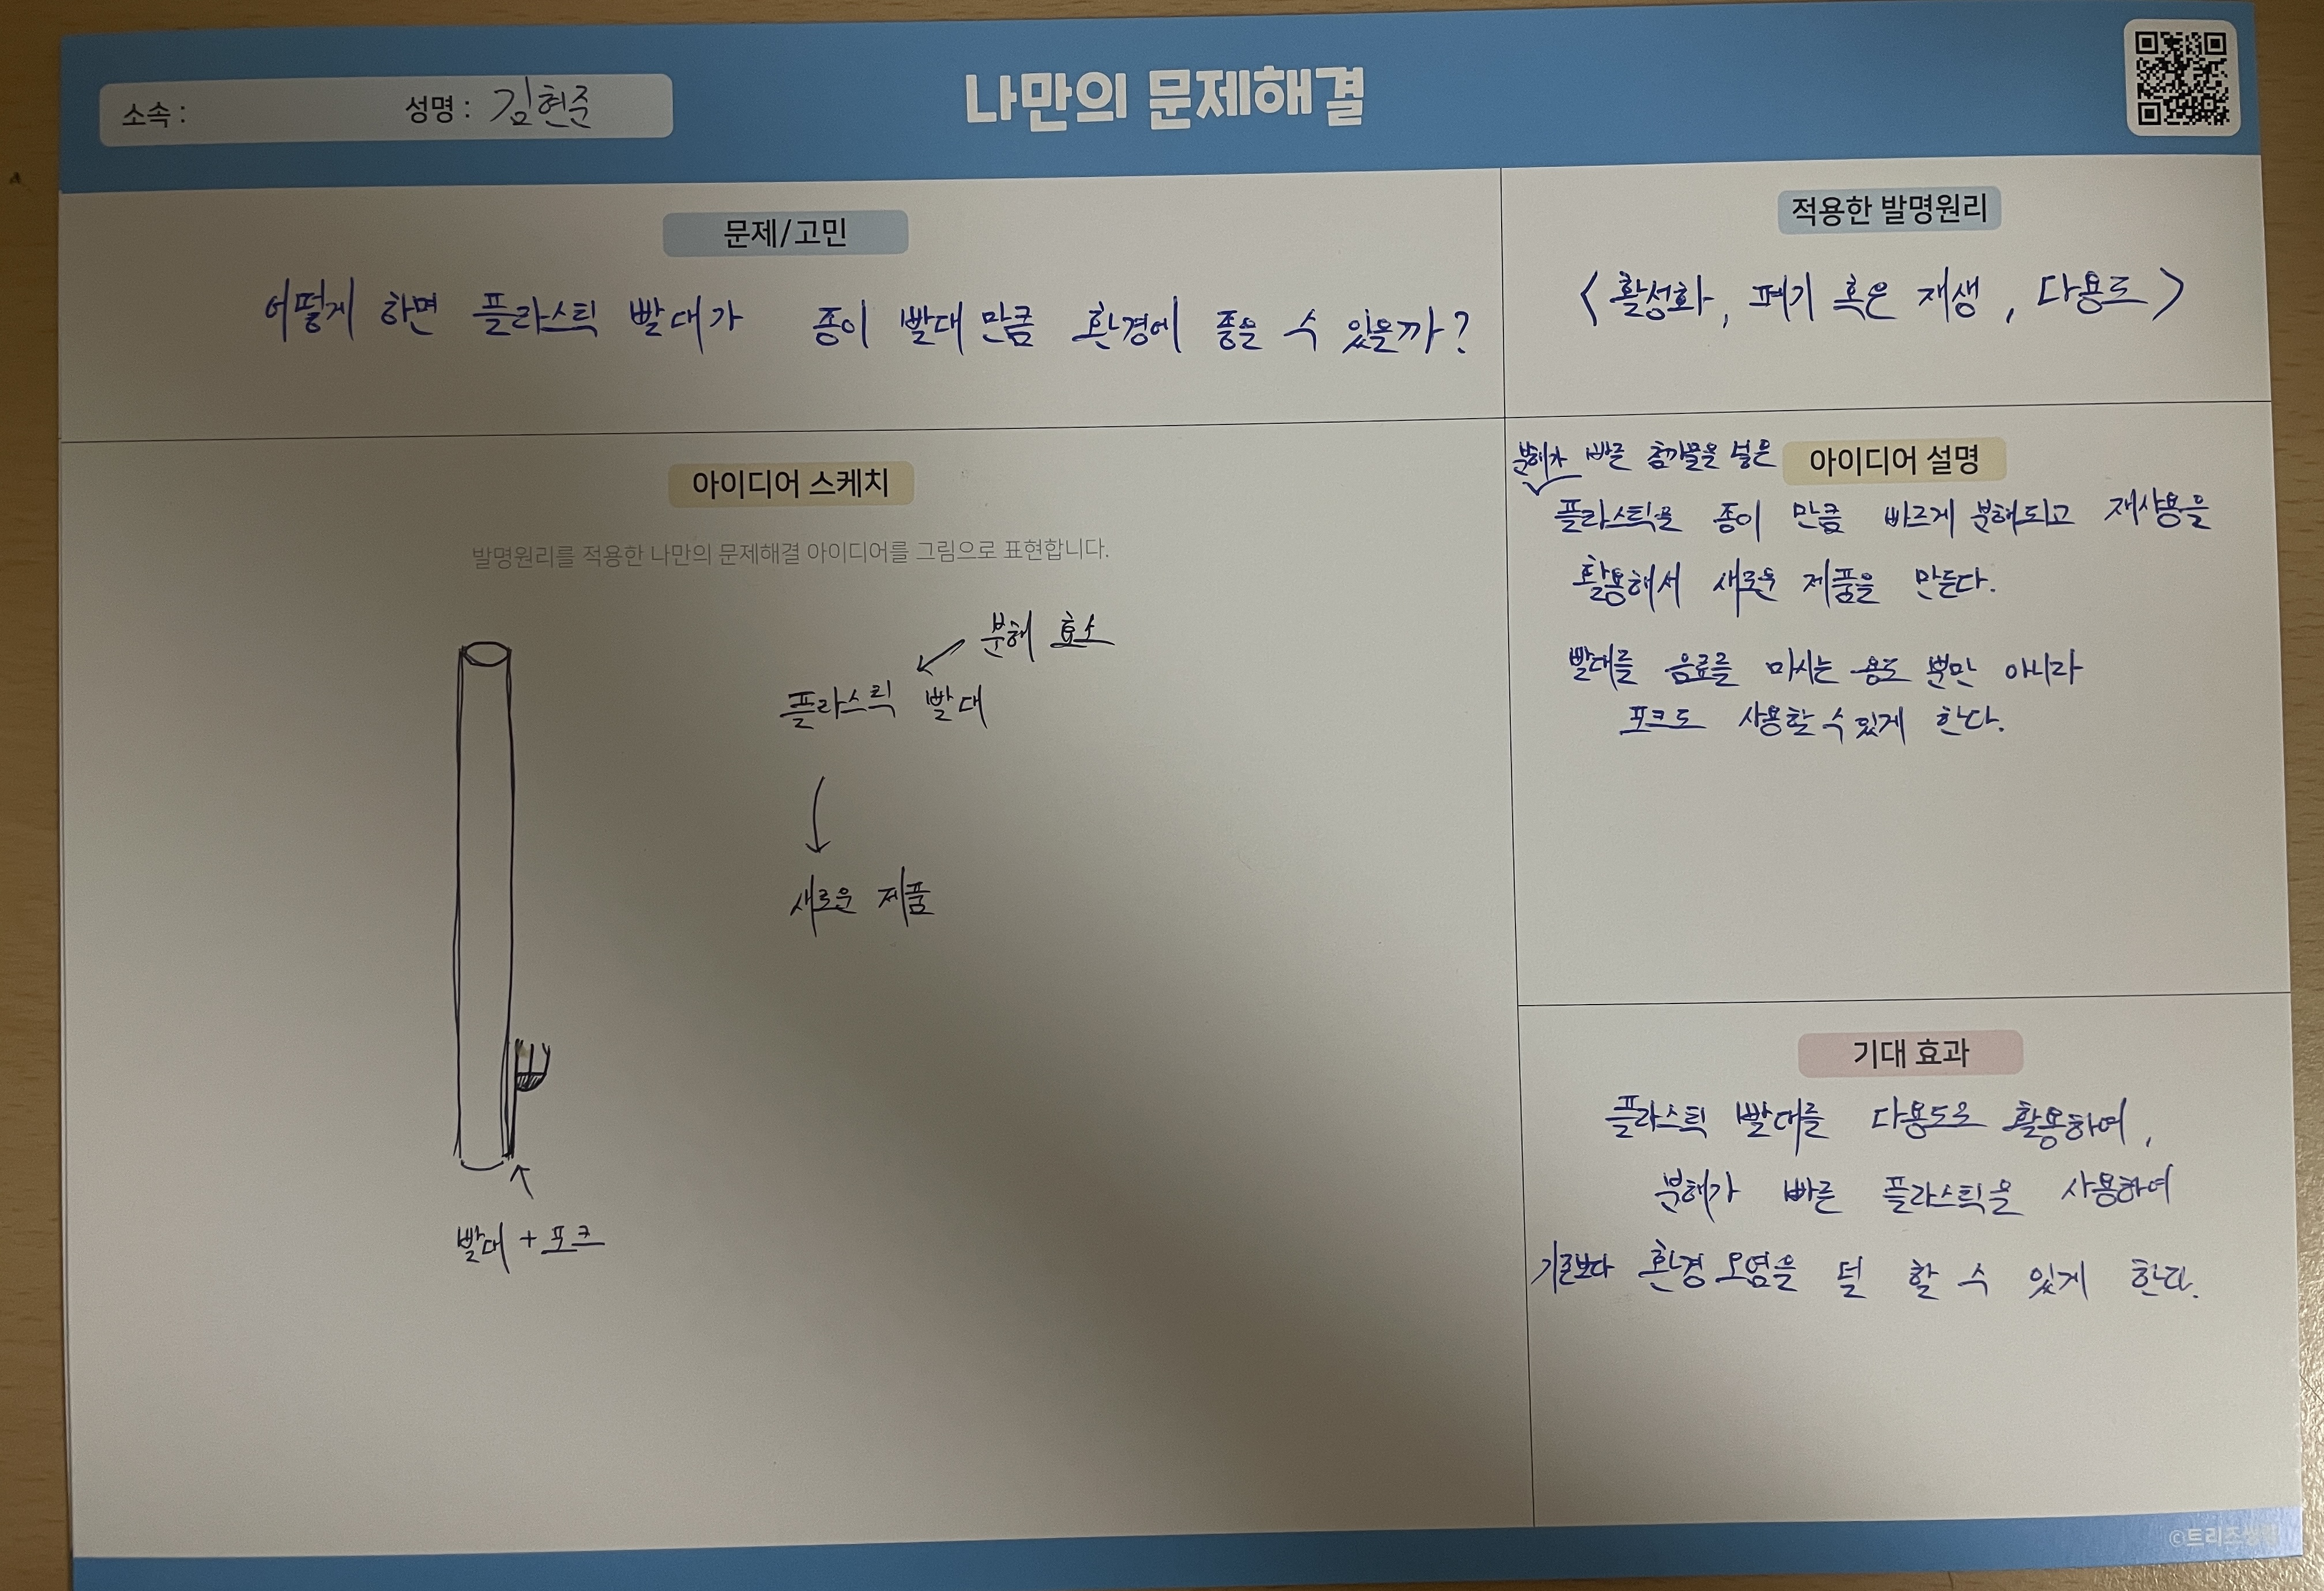 나만의 문제해결
소속 : 성명 : 김현준
문제/고민
어떻게 하면 플라스틱 빨대가 종이 빨대 만큼 환경에 좋을 수 있을까?
적용한 발명원리
<활성화, 폐기 혹은 재생, 다용도>
아이디어 스케치
발명원리를 적용한 나만의 문제해결 아이디어를 그림으로 표현합니다.
분해 효소
플라스틱 빨대
새로운 제품
빨대 + 포크
아이디어 설명
분해가 빠른 첨가물을 넣은
플라스틱을 종이 만큼 빠르게 분해되고 재사용을
활용해서 새로운 제품을 만든다.
빨대를 음료를 마시는 용도 뿐만 아니라
포크도 사용할 수 있게 한다.
기대 효과
플라스틱 빨대를 다용도로 활용하여,
분해가 빠른 플라스틱을 사용하여
기존보다 환경 오염을 덜 할 수 있게 한다.
©트리즈